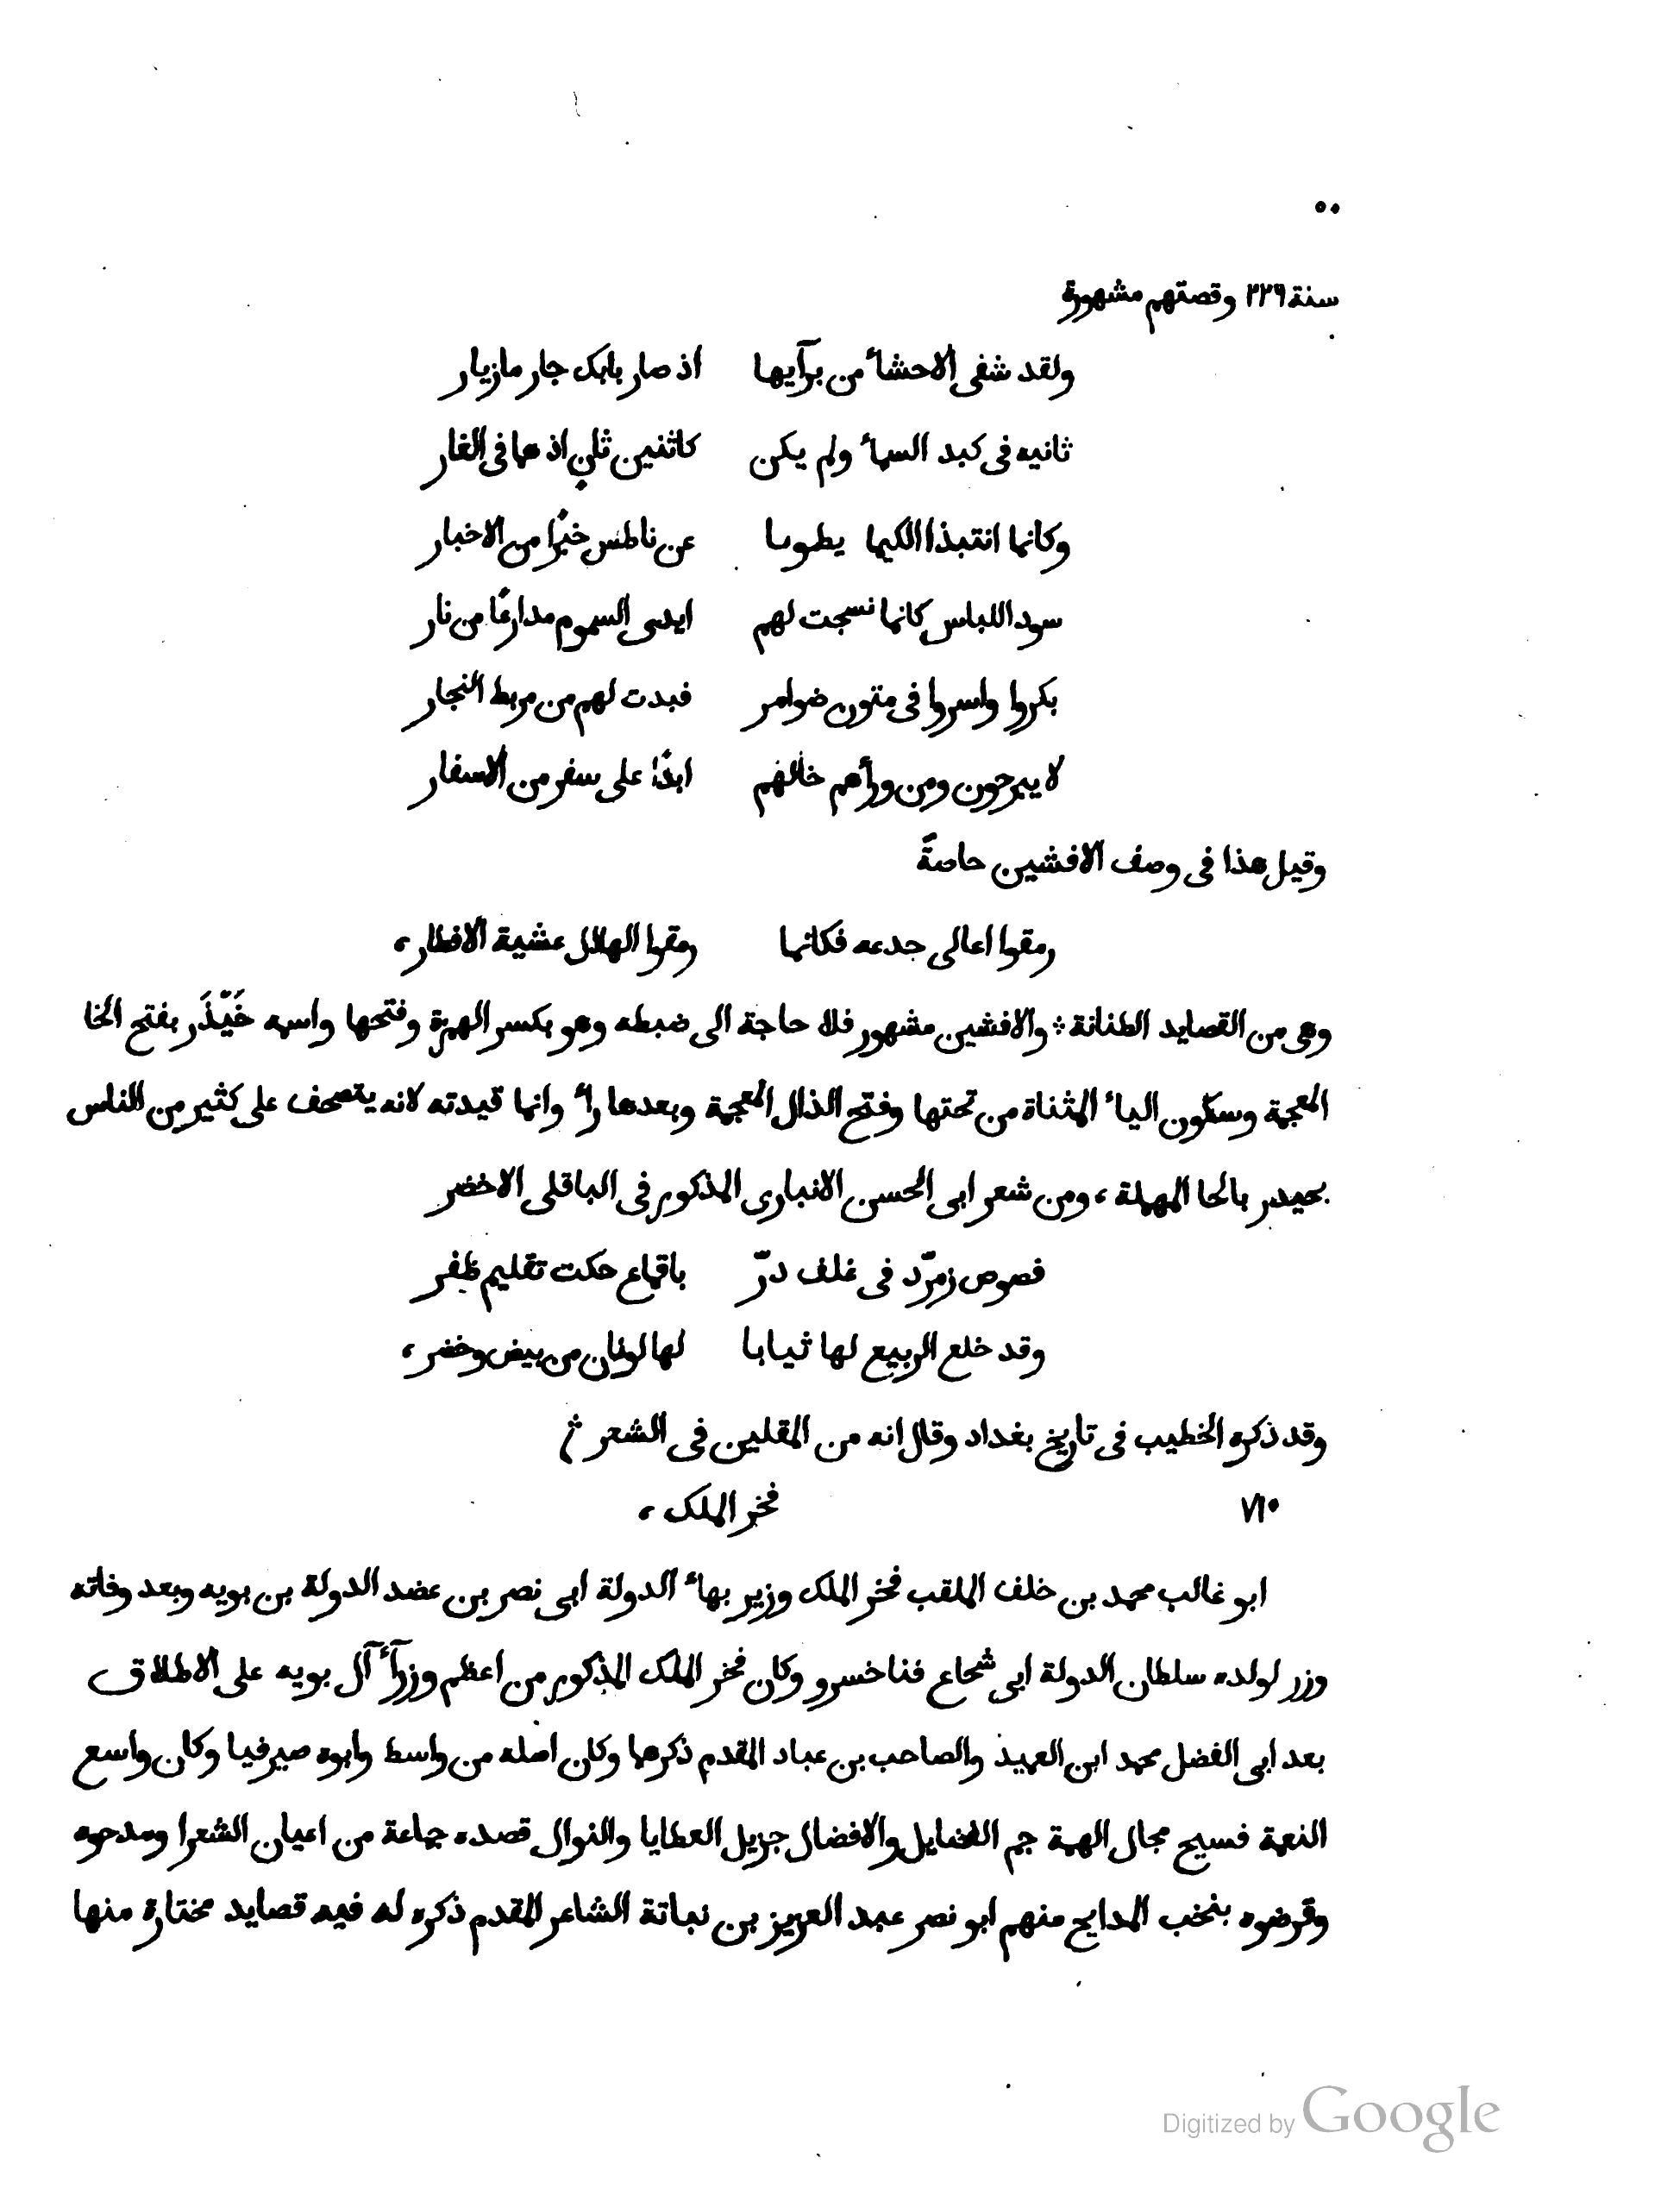 ٥٠
سنة ٢٢٦ وقصتهم مشهورة
ولقد شفى الاحشاء من برآيها اذ صار بابك جار مازيار
ثانيه فى كبد السماء ولم يكن كاثنين ثان اذ هما فى الغار
وكانما انتبذا الكيما يطويا عن ناطس خبرًا من الاخبار
سود اللباس كانما نسجت لهم ايدى السموم مدارعًا من نار
بكروا واسروا فى متون ضوامر قيدت لهم من مربط النجار
لا يبرحون ومن ورآهم خالهم ابدًا على سفر من الاسفار
وقيل هذا فى وصف الافشين خاصةً
رمقوا اعالى جدعه فكانما رمقوا الهلال عشية الافطار،
وهى من القصايد الطنانة ؞ والافشين مشهور فلا حاجة الى ضبطه وهو بكسر الهمزة وفتحها واسمه خَيْذَر بفتح الخا
المعجمة وسكون الياء المثناة من تحتها وفتح الذال المعجمة وبعدها راء وانما قيدته لانه يتصحف على كثير من الناس
بحيدر بالحا المهملة، ومن شعر ابى الحسن الانبارى المذكور فى الباقلى الاخضر
فصوص زمرّد فى غلف درّ باقماع حكت تقليم ظفر
وقد خلع الربيع لها ثيابا لها لونان من بيض وخضر،
وقد ذكره الخطيب فى تاريخ بغداد وقال انه من المقلين فى الشعر ؞
٧١٠ فخر الملك،
ابو غالب محمد بن خلف الملقب فخر الملك وزير بهاء الدولة ابى نصر بن عضد الدولة بن بويه وبعد وفاته
وزر لولده سلطان الدولة ابى شجاع فناخسرو وكان فخر الملك المذكور من اعظم وزرآء آل بويه على الاطلاق
بعد ابى الفضل محمد ابن العميد والصاحب بن عباد المقدم ذكرهما وكان اصله من واسط وابوه صيرفيا وكان واسع
النعمة فسيح مجال الهمة جم الفضايل والافضال جزيل العطايا والنوال قصده جماعة من اعيان الشعرا ومدحوه
وقرضوه بنخب المدايح منهم ابو نصر عبد العزيز بن نباتة الشاعر المقدم ذكره له فيه قصايد مختارة منها
Digitized by Google